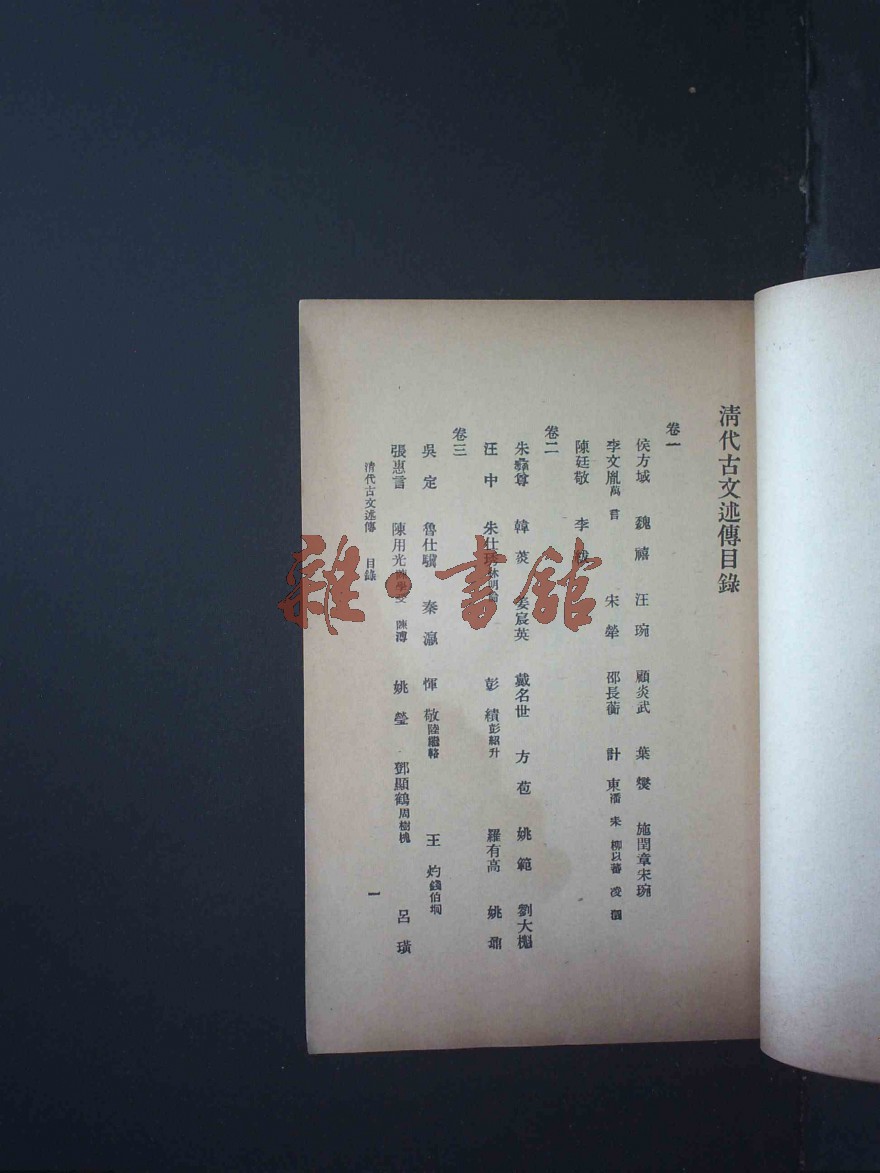 清代古文述傳目錄
卷一
侯方域 魏禧 汪琬 顧炎武 葉燮 施閏章宋琬
李文胤萬言 宋犖 邵長蘅 計東潘耒 柳以蕃 凌
陳廷敬 李紱
卷二
朱彝尊 韓菼 姜宸英 戴名世 方苞 姚範 劉大櫆
汪中 朱仕琇林明倫 彭績彭紹升 羅有高 姚鼐
卷三
吳定 魯仕驥 秦瀛 惲敬陸繼輅 王灼錢伯坰
張惠言 陳用光陳學受 陳溥 姚瑩 鄧顯鶴周樹槐 呂璜
清代古文述傳 目錄
一
雜·書館